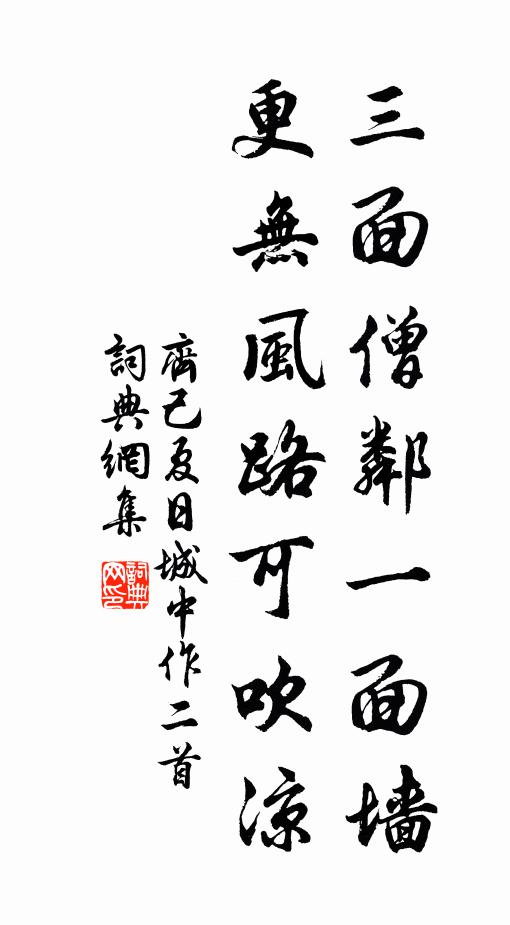 三面僧鄰一面墻
更無風路可吹涼
齊己夏日城中作二首
詞典網集
詞典网印